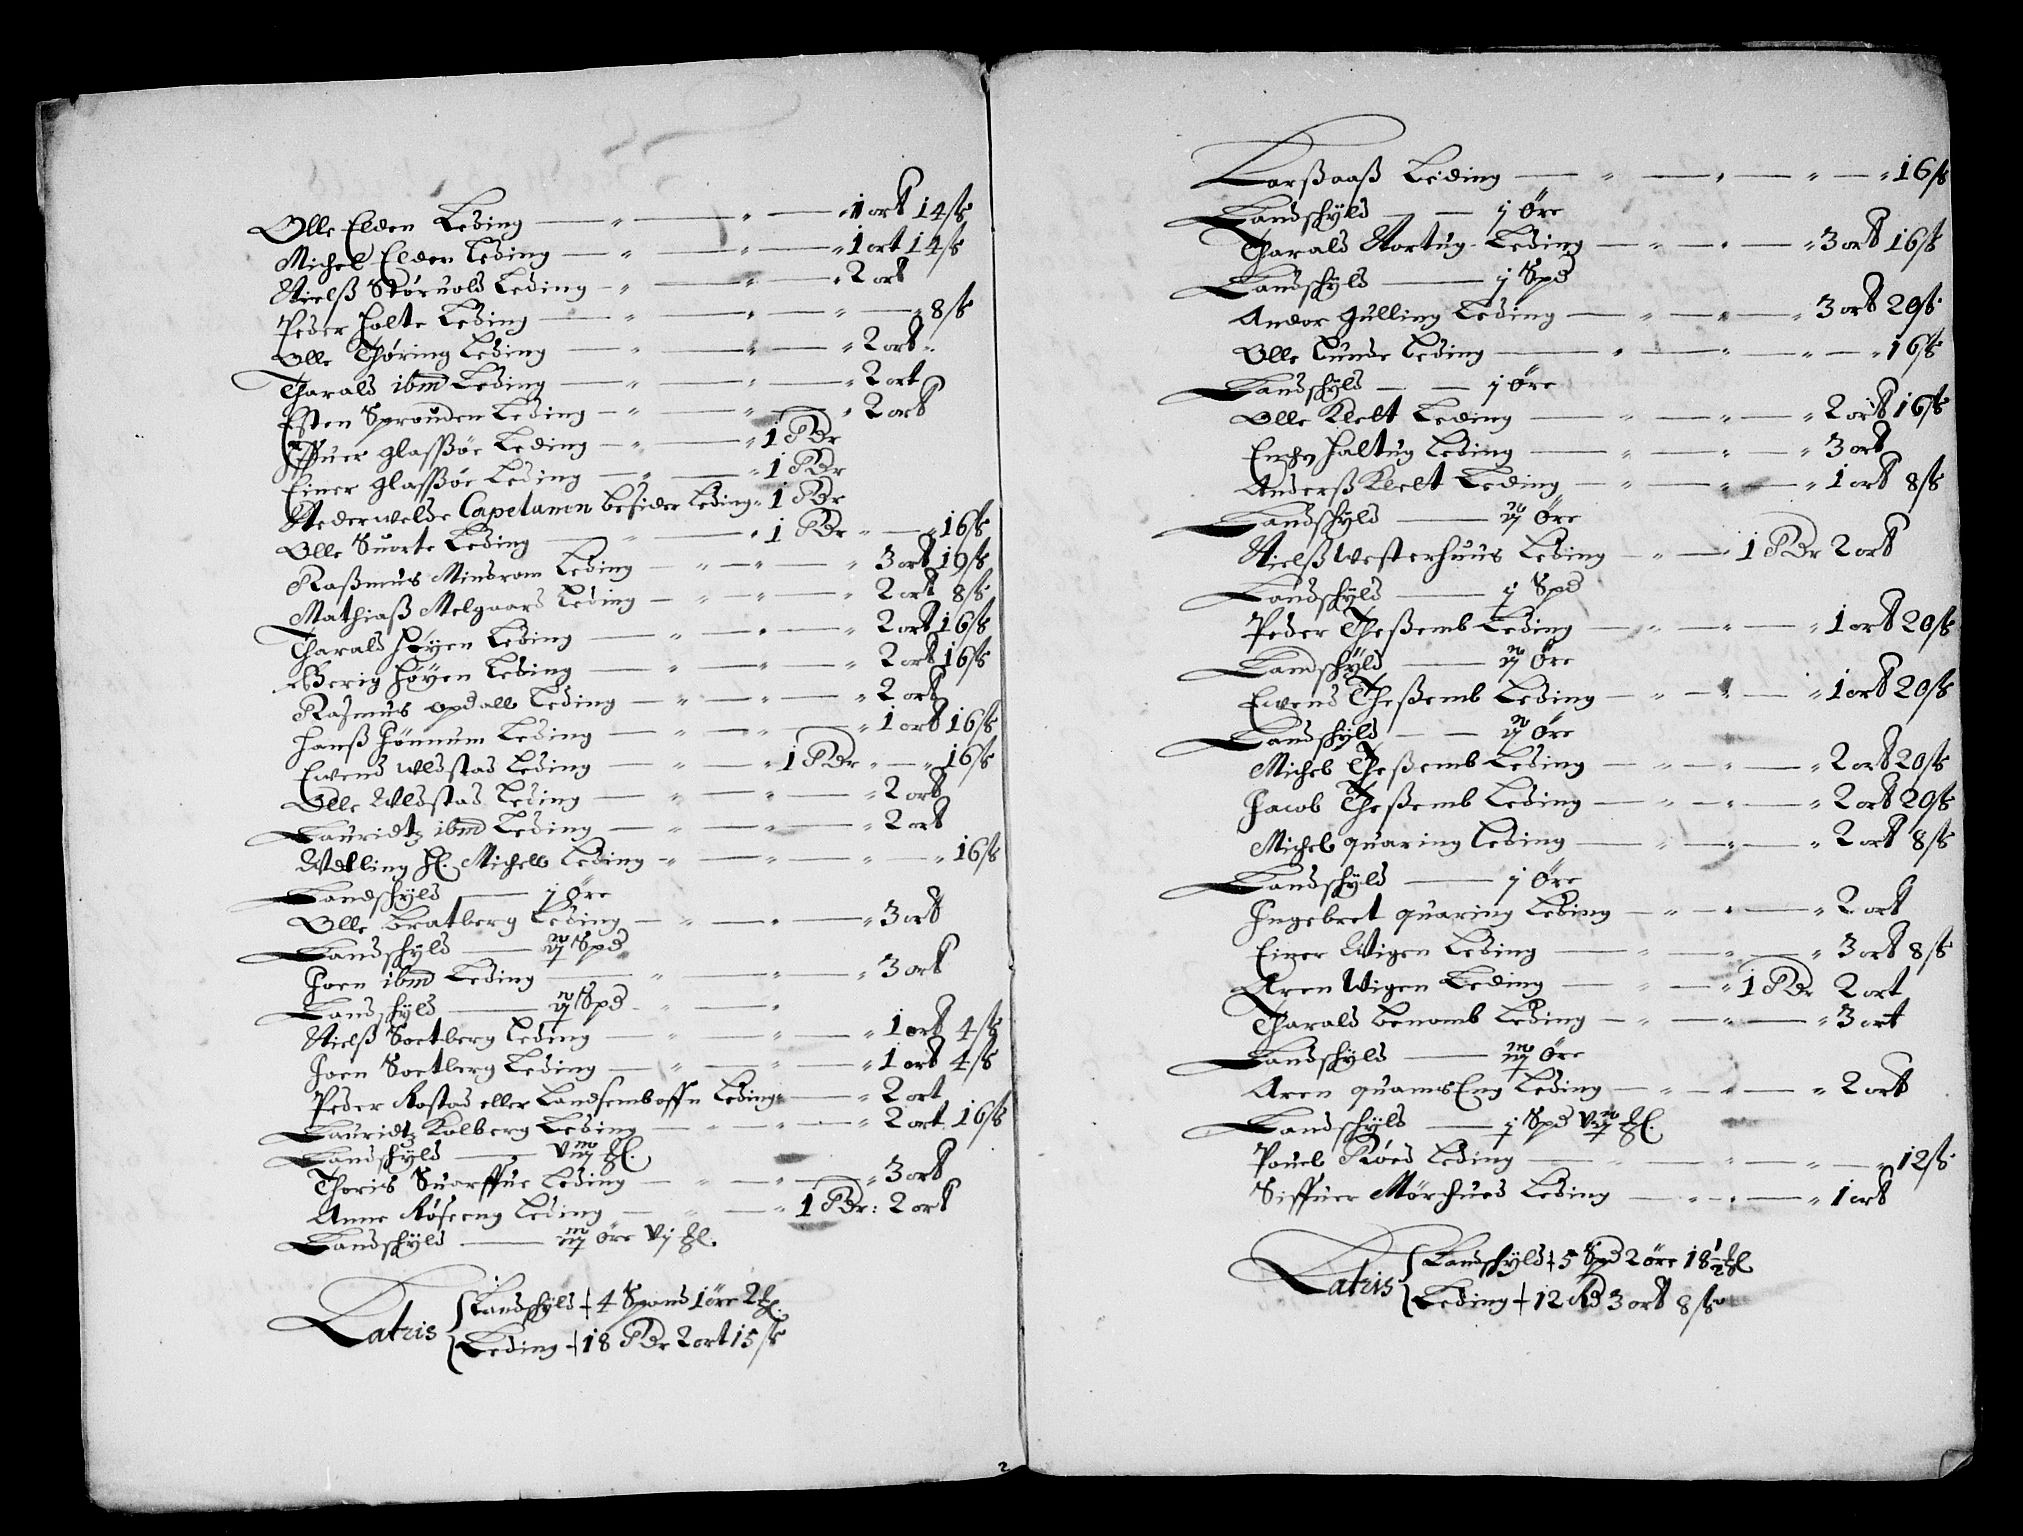 Olle Elden Leding — 1 ort 14 ß
Michel Elden Leding — 1 ort 14 ß
Nielß Størvold Leding — 2 ort
Peder Holte Leding — 8 ß
Olle Thøring Leding — 2 ort
Tharald ibm Leding — 2 ort
Esten Sprouden Leding — 2 ort
Iffuer Glassøe Leding — 1 Rdr
Einer Glassøe Leding — 1 Rdr
Nederwelde Capelanen besider Leding 1 Rdr
Olle Suorte Leding — 1 Rdr — 16 ß
Raßmus Mindrom Leding — 3 ort 19 ß
Mathiaß Melgaard Leding — 2 ort 8 ß
Tharald Høyen Leding — 2 ort 16 ß
Høyen Leding — 2 ort 16 ß
Rasmus Opdall Leding — 2 ort
Hanß Hønnum Leding — 1 ort 16 ß
Ewend Uldstad Leding — 1 Rdr — 16 ß
Olle Uldstad Leding — 2 ort
Lauridtz ibm Leding — 2 ort
Hr. Michell Leding — 16 ß
Landschyld — j Øre
Olle Bratberg Leding — 3 ort
Landschyld — ij Spd
Joen ibm Leding — 3 ort
Landschyld — ij Spd
Nielß Soetberg Leding — 1 ort 4 ß
Joen Soetberg Leding — 1 ort 4 ß
Peder Rostad eller Landsemboffn Leding — 2 ort
Lauridtz Kolberg Leding — 2 ort 16 ß
Landschyld — viij
Thoris Suarffue Leding — 3 ort
Anne Røseeng Leding — 1 Rdr: 2 ort
Landschyld — iij øre vj
Latris { Landschyld + 4 Spand 1 øre 2
{ Leding + 18 Rdr 2 ort 15 ß
Larßaaß Leding — 16 ß
Landschyld — j Øre
Tharald Nortug Leding — 3 ort 16 ß
Landschyld — j Spd
Andor Hulling Leding — 3 ort 20 ß
Olle Lunde Leding — 16 ß
Landschyld — j Øre
Olle Klelt Leding — 2 ort 16 ß
Haltug Leding — 3 ort
Anderß Klelt Leding — 1 ort 8 ß
Landschyld — ij Øre
Nielß Westerhuus Leding — 1 Rdr 2 ort
Landschyld — j Spd
Peder Theßemb Leding — 1 ort 20 ß
Landschyld — ij Øre
Ewend Theßemb Leding — 1 ort 20 ß
Landschyld — ij Øre
Michel Theßemb Leding — 2 ort 20 ß
Jacob Theßemb Leding — 2 ort 20 ß
Michel Quaring Leding — 2 ort 8 ß
Landschyld — j Øre
Ingebret Quaring Leding — 2 ort
Einer Wigen Leding — 3 ort 8 ß
Aren Wigen Leding — 1 Rdr 2 ort
Tharald Benomb Leding — 3 ort
Landschyld — iij Øre
Aren QuamsEng Leding — 2 ort
Landschyld — j Spd viij
Pouel Røed Leding — 12 ß
Siffuer Mørchued Leding — 1 ort
Latris { Landschyld + 5 Spd 2 øre 18 1/2
{ Leding + 12 Rd 3 ort 8 ß
2